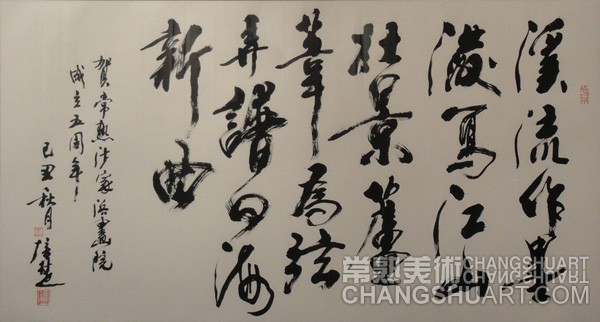 溪流作墨
泼写江山
壮景蘆
葦為弦
弄譜四海
新曲
賀常熟沙家浜畫院
成立五周年！
己丑秋月
常熟美術 CHANGSHUART
CHANGSHUART.COM